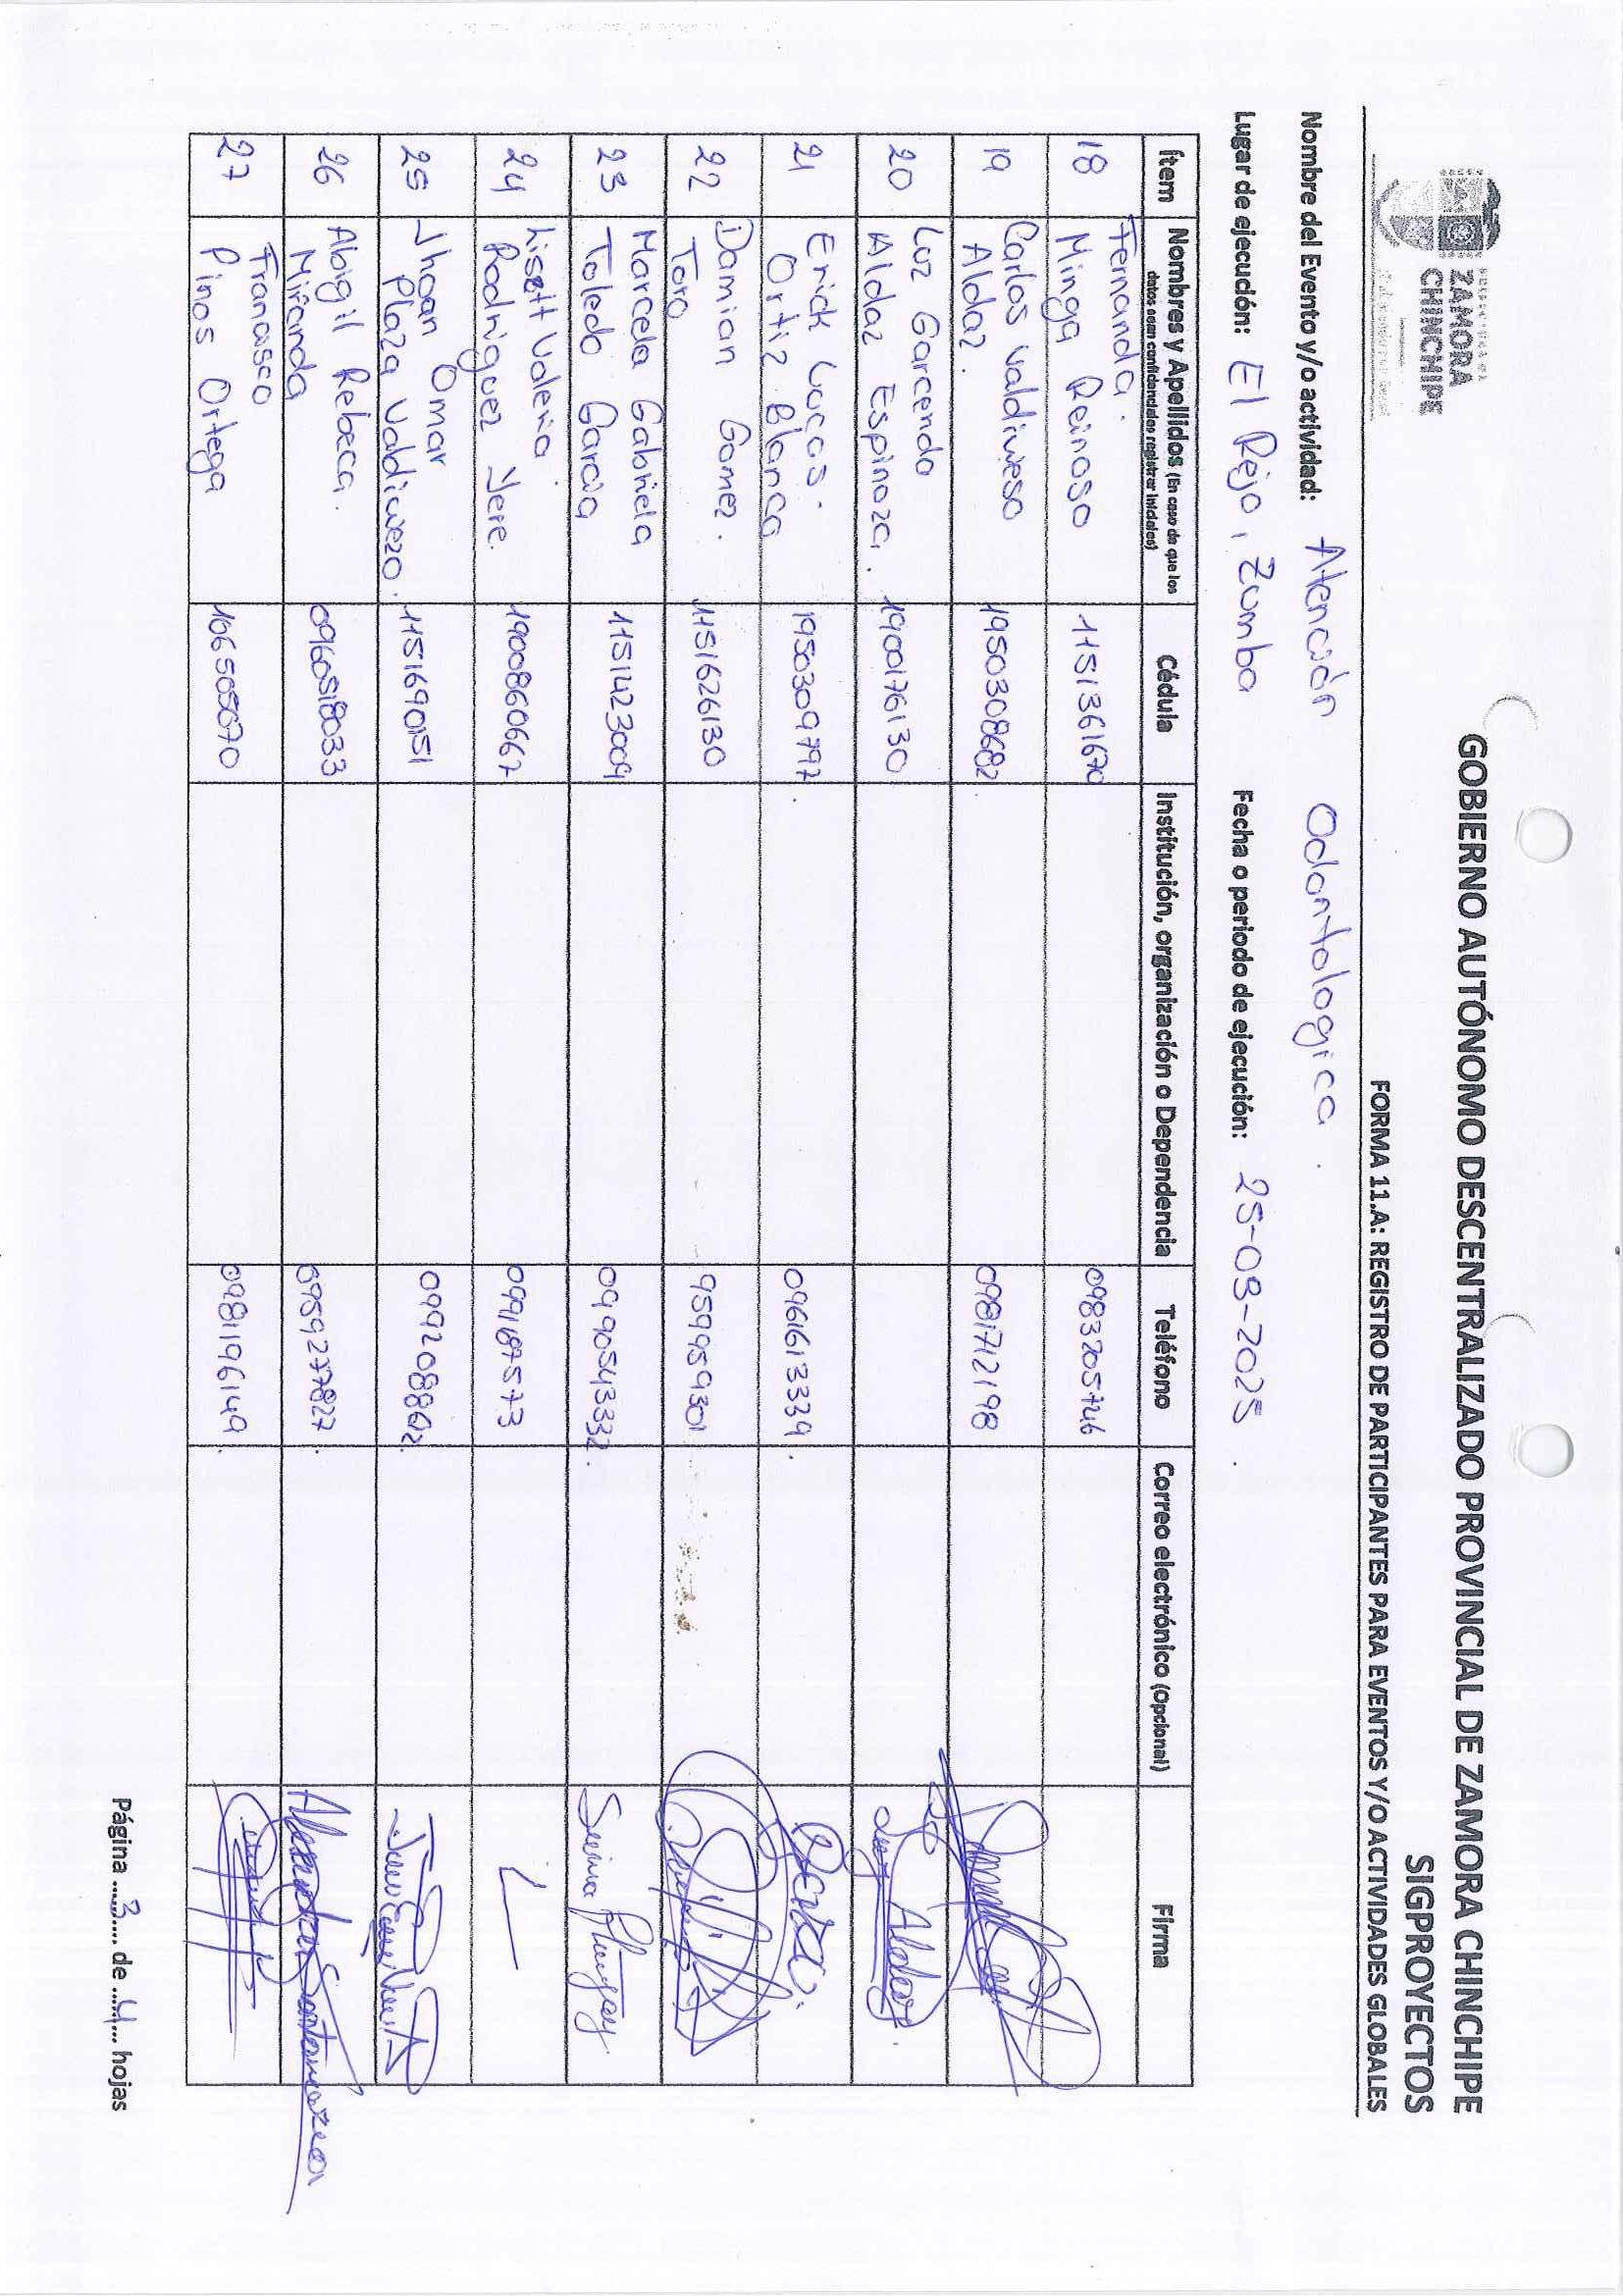 ZAMORA
CHINCHIPE
GOBIERNO AUTÓNOMO DESCENTRALIZADO PROVINCIAL DE ZAMORA CHINCHIPE
SIGPROYECTOS
FORMA 11.A: REGISTRO DE PARTICIPANTES PARA EVENTOS Y/O ACTIVIDADES GLOBALES
Nombre del Evento y/o actividad: Atención Odontologica.
Lugar de ejecución: El Rejo, Zumba Fecha o periodo de ejecución: 25-03-2025.
Ítem Nombres y Apellidos (En caso de que los datos sean confidenciales registrar iniciales) Cédula Institución, organización o Dependencia Teléfono Correo electrónico (Opcional) Firma
18 Fernanda. Minga Reinoso 1151361670 0983205746
19 Carlos Valdivieso Aldaz. 1950308682 0981712198
20 Luz Garcenda Aldaz Espinoza. 1900176130 Luz Aldaz.
21 Erick Lucas. Ortiz Blanca 1950309797. 0961613339.
22 Damian Gomez. Toro 1151626130 959959301
23 Marcela Gabriela Toledo Garcia 1151423009 0990543332.
24 Liszt Valeria Rodriguez Jere. 1900860667 099187573
25 Jhoan Omar Plaza Valdiviezo. 1151690151 0992088602.
26 Abigil Rebeca. Miranda 0960518033 0959277827.
27 Francisco Pinos Ortega 106505070 0981196149.
Página 3 de 4 hojas